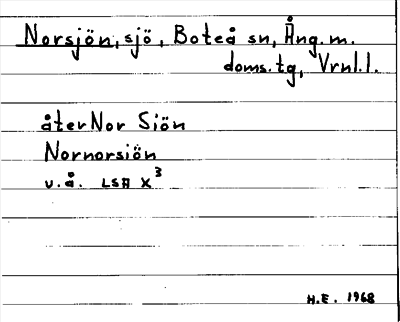 Norsjön, sjö, Boteå sn, Ång. m.
doms. tg, Vrnl. l.
åter Nor Siön
Nornorsiön
u. å. LSA X³
H.E. 1968